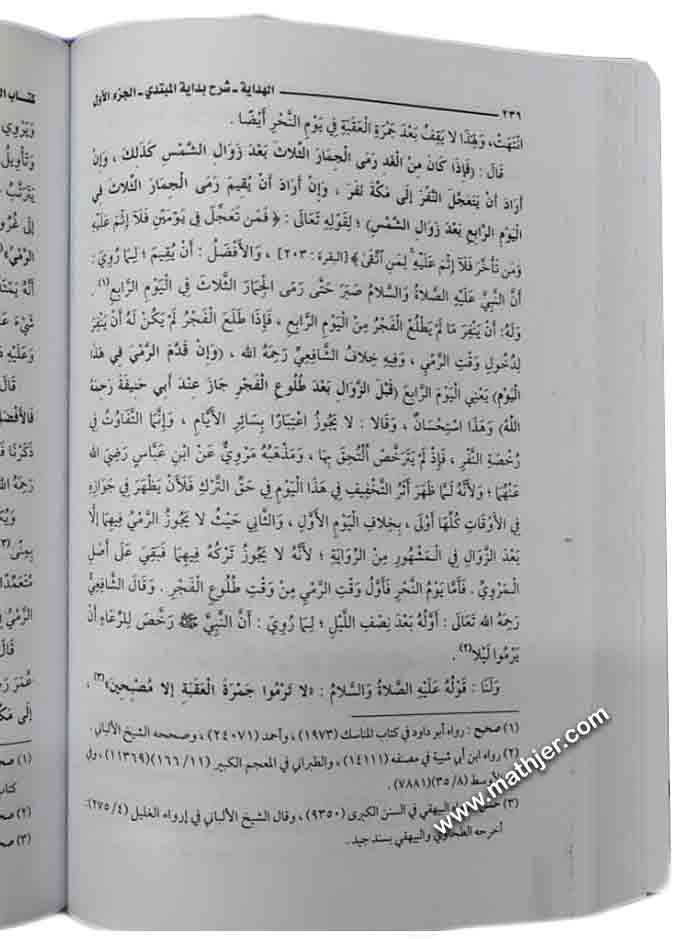 الهداية ـ شرح بداية المبتدي ـ الجزء الأول
٢٣٦
انْتَهَتْ، وَلِهَذَا لَا يَقِفُ بَعْدَ جَمْرَةِ الْعَقَبَةِ فِي يَوْمِ النَّحْرِ أَيْضًا .
قَالَ : (فَإِذَا كَانَ مِنْ الْغَدِ رَمَى الْجِمَارَ الثَّلَاثَ بَعْدَ زَوَالِ الشَّمْسِ كَذَلِكَ ، وَإِنْ
أَرَادَ أَنْ يَتَعَجَّلَ النَّفْرَ إِلَى مَكَّةَ نَفَرَ ، وَإِنْ أَرَادَ أَنْ يُقِيمَ رَمَى الْجِمَارَ الثَّلَاثَ فِي
الْيَوْمِ الرَّابِعِ بَعْدَ زَوَالِ الشَّمْسِ) ؛ لِقَوْلِهِ تَعَالَى : ﴿ فَمَن تَعَجَّلَ فِي يَوْمَيْنِ فَلَا إِثْمَ عَلَيْهِ
وَمَن تَأَخَّرَ فَلَا إِثْمَ عَلَيْهِ لِمَنِ اتَّقَى ﴾ [البقرة : ٢٠٣] ، وَالْأَفْضَلُ : أَنْ يُقِيمَ ؛ لِمَا رُوِيَ :
أَنَّ النَّبِيَّ عَلَيْهِ الصَّلَاةُ وَالسَّلَامُ صَبَرَ حَتَّى رَمَى الْجِمَارَ الثَّلَاثَ فِي الْيَوْمِ الرَّابِعِ(١) .
وَلَهُ: أَنْ يَنْفِرَ مَا لَمْ يَطْلُعْ الْفَجْرُ مِنْ الْيَوْمِ الرَّابِعِ ، فَإِذَا طَلَعَ الْفَجْرُ لَمْ يَكُنْ لَهُ أَنْ يَنْفِرَ
لِدُخُولِ وَقْتِ الرَّمْيِ ، وَفِيهِ خِلَافُ الشَّافِعِيِّ رَحِمَهُ الله ، (وَإِنْ قَدَّمَ الرَّمْيَ فِي هَذَا
الْيَوْمِ) يَعْنِي الْيَوْمَ الرَّابِعَ (قَبْلَ الزَّوَالِ بَعْدَ طُلُوعِ الْفَجْرِ جَازَ عِنْدَ أَبِي حَنِيفَةَ رَحِمَهُ
اللهُ) وَهَذَا اسْتِحْسَانٌ ، وَقَالَا : لَا يَجُوزُ اعْتِبَارًا بِسَائِرِ الْأَيَّامِ ، وَإِنَّمَا التَّفَاوُتُ فِي
رُخْصَةِ النَّفْرِ ، فَإِذْ لَمْ يَتَرَخَّصْ الْتُحِقَ بِهَا ، وَمَذْهَبُهُ مَرْوِيٌّ عَنْ ابْنِ عَبَّاسٍ رَضِيَ الله
عَنْهُمَا ؛ وَلِأَنَّهُ لَمَّا ظَهَرَ أَثَرُ التَّخْفِيفِ فِي هَذَا الْيَوْمِ فِي حَقِّ التَّرْكِ فَلَأَنْ يَظْهَرَ فِي جَوَازِهِ
فِي الْأَوْقَاتِ كُلِّهَا أَوْلَى ، بِخِلَافِ الْيَوْمِ الْأَوَّلِ ، وَالثَّانِي حَيْثُ لَا يَجُوزُ الرَّمْيُ فِيهِمَا إِلَّا
بَعْدَ الزَّوَالِ فِي الْمَشْهُورِ مِنْ الرِّوَايَةِ ؛ لِأَنَّهُ لَا يَجُوزُ تَرْكُهُ فِيهِمَا فَبَقِيَ عَلَى أَصْلِ
الْمَرْوِيِّ . فَأَمَّا يَوْمُ النَّحْرِ فَأَوَّلُ وَقْتِ الرَّمْيِ مِنْ وَقْتِ طُلُوعِ الْفَجْرِ . وَقَالَ الشَّافِعِيُّ
رَحِمَهُ الله تَعَالَى : أَوَّلُهُ بَعْدَ نِصْفِ اللَّيْلِ ؛ لِمَا رُوِيَ : أَنَّ النَّبِيَّ ﷺ رَخَّصَ لِلرِّعَاءِ أَنْ
يَرْمُوا لَيْلًا(٢) .
وَلَنَا : قَوْلُهُ عَلَيْهِ الصَّلَاةُ وَالسَّلَامُ : «لَا تَرْمُوا جَمْرَةَ الْعَقَبَةِ إِلَّا مُصْبِحِينَ»(٣) ،
(١) صحيح : رواه أبو داود في كتاب المناسك (١٩٧٣) ، وأحمد (٢٤٠٧١) ، وصححه الشيخ الألباني .
(٢) رواه ابن أبي شيبة في مصنفه (١٤١١١) ، والطبراني في المعجم الكبير (١١/ ١٦٦)(١١٣٦٩) ، وفي
الأوسط (٨/ ٣٥)(٧٨٨١) .
(٣) البيهقي في السنن الكبرى (٩٣٥٠) ، وقال الشيخ الألباني في إرواء الغليل (٤/ ٢٧٥):
أخرجه الطحاوي والبيهقي بسند جيد .
www.mathjer.com